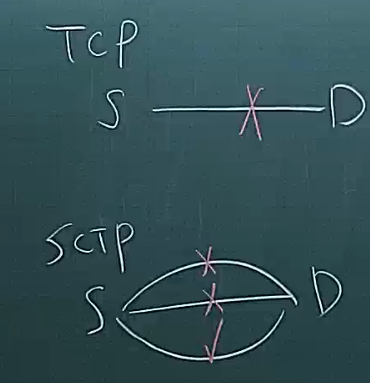 TCP
S D
SCTP
S D